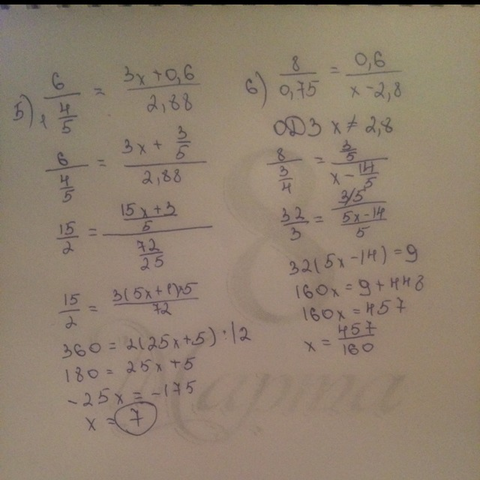 5) 6/(4/5) = (3x+0,6)/2,88
6/(4/5) = (3x+3/5)/2,88
15/2 = ((15x+3)/5)/(72/25)
15/2 = 3(5x+1)·5/72
360 = 2(25x+5) ·|2
180 = 25x+5
-25x = -175
x = 7
6) 8/0,75 = 0,6/(x-2,8)
ОДЗ x ≠ 2,8
8/(3/4) = (3/5)/(x-14/5)
32/3 = (3/5)/((5x-14)/5)
32(5x-14)=9
160x = 9+448
160x = 457
x = 457/160
8
Марта